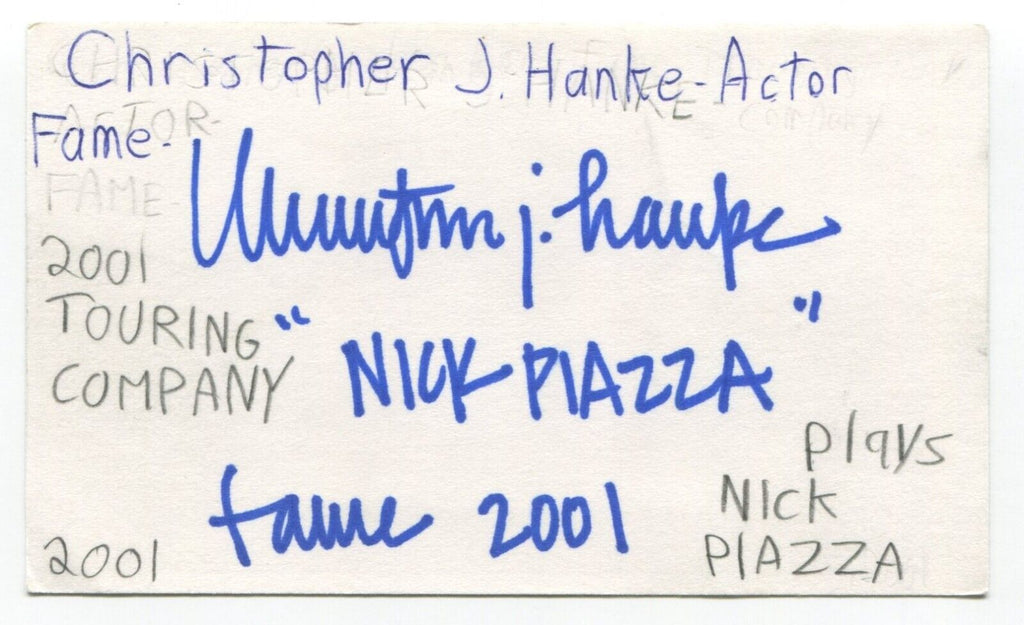 Christopher J. Hanke-Actor
Fame-
ACTOR-
FAME-
Christopher j. hanke
2001
TOURING
COMPANY
" NICK PIAZZA "
plays
NICK
PIAZZA
fame 2001
2001